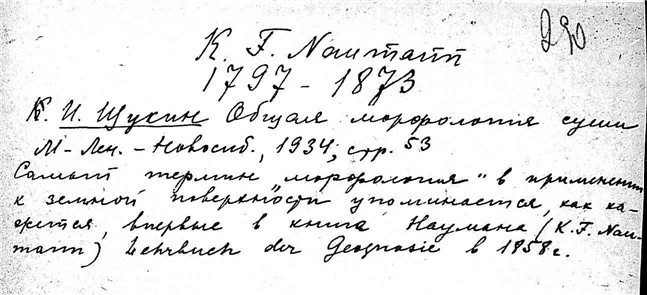 290
K. F. Naumann
1797 - 1873
К. И. Щукин Общая морфология суши
М-Лен. - Новосиб., 1934, стр. 53
Самый термин „морфология" в применении
к земной поверхности упоминается, как ка-
жется, впервые в книге Наумана (K. F. Nau-
mann) Lehrbuch der Geognosie в 1858 г.